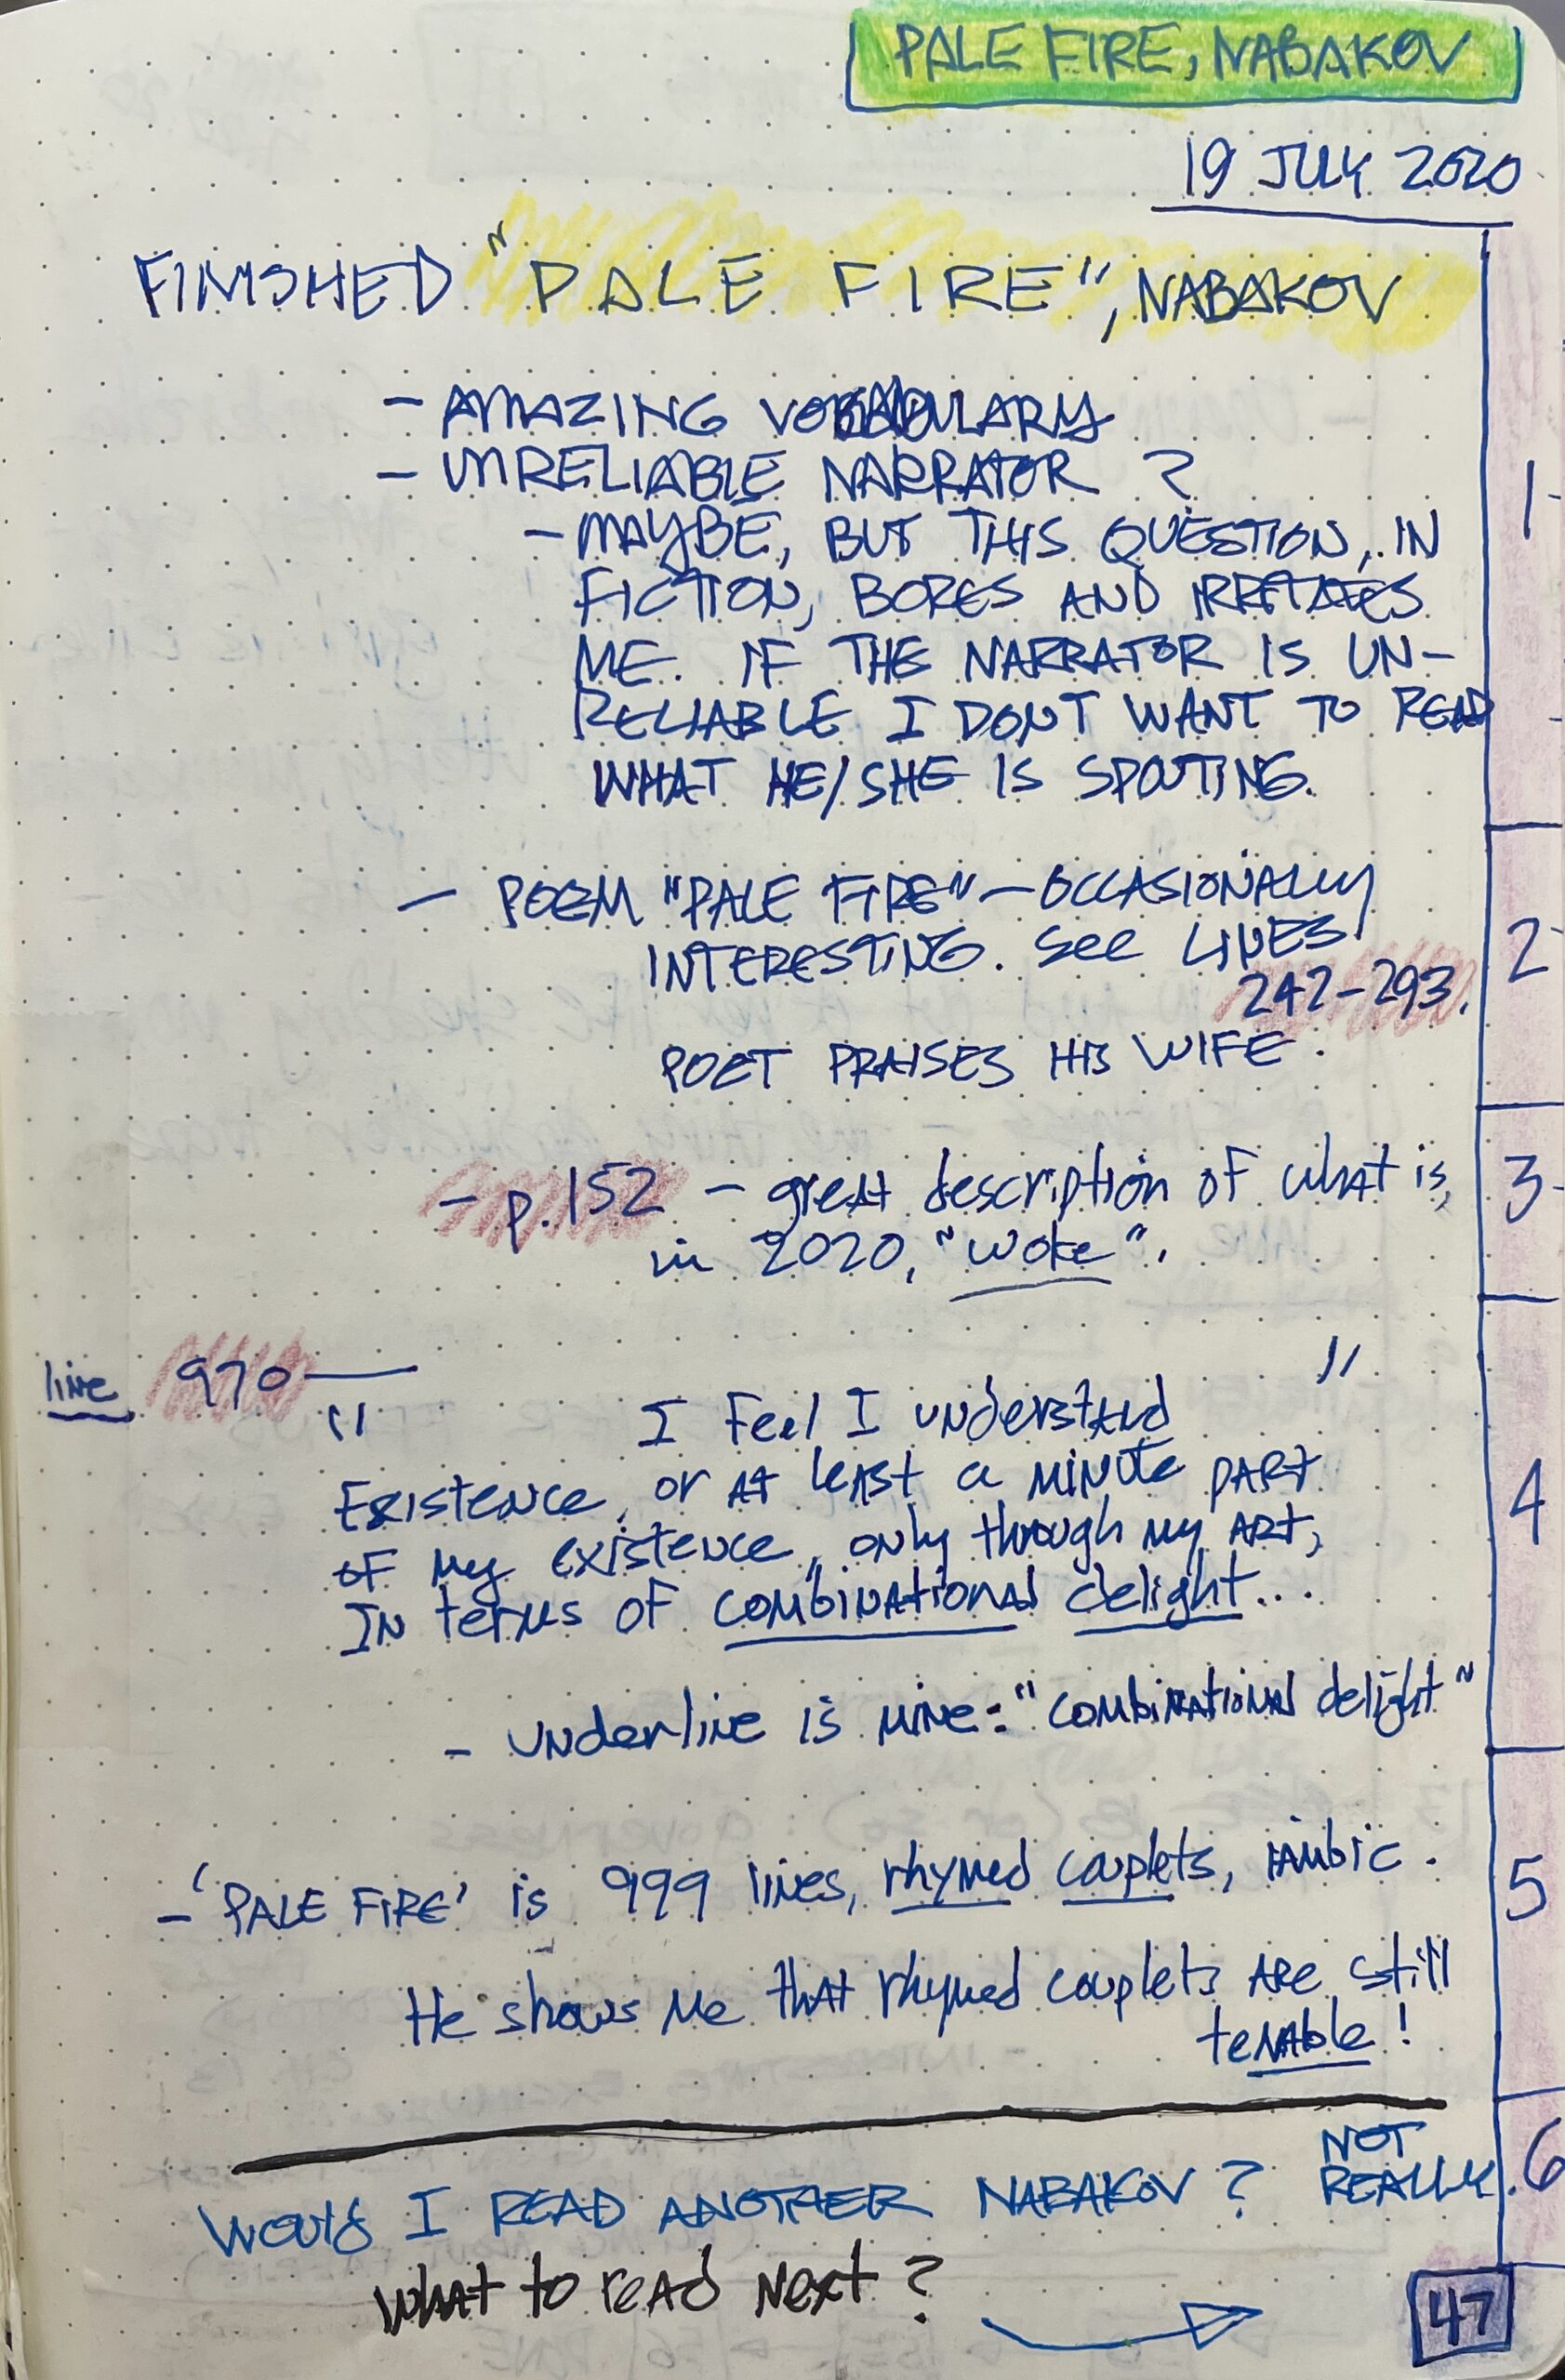 PALE FIRE, NABAKOV
19 JULY 2020
FINISHED "PALE FIRE", NABAKOV
- AMAZING VOCABULARY
- UNRELIABLE NARRATOR ?
- MAYBE, BUT THIS QUESTION, IN
FICTION, BORES AND IRRITATES
ME. IF THE NARRATOR IS UN-
RELIABLE I DONT WANT TO READ
WHAT HE/SHE IS SPOUTING.
1
- POEM "PALE FIRE" - OCCASIONALLY
INTERESTING. See LINES
242-293.
POET PRAISES HIS WIFE.
2
- p.152 - great description of what is,
in 2020, "woke".
3
line 970 —
" I Feel I understand "
Existence, or at least a minute part
of my existence, only through my art,
In terms of combinational delight...
- underline is mine: "combinational delight"
4
- 'PALE FIRE' is 999 lines, rhymed couplets, iambic.
He shows me that rhymed couplets are still
tenable!
5
WOULD I READ ANOTHER NABAKOV? NOT
REALLY.
6
What to read next?
47